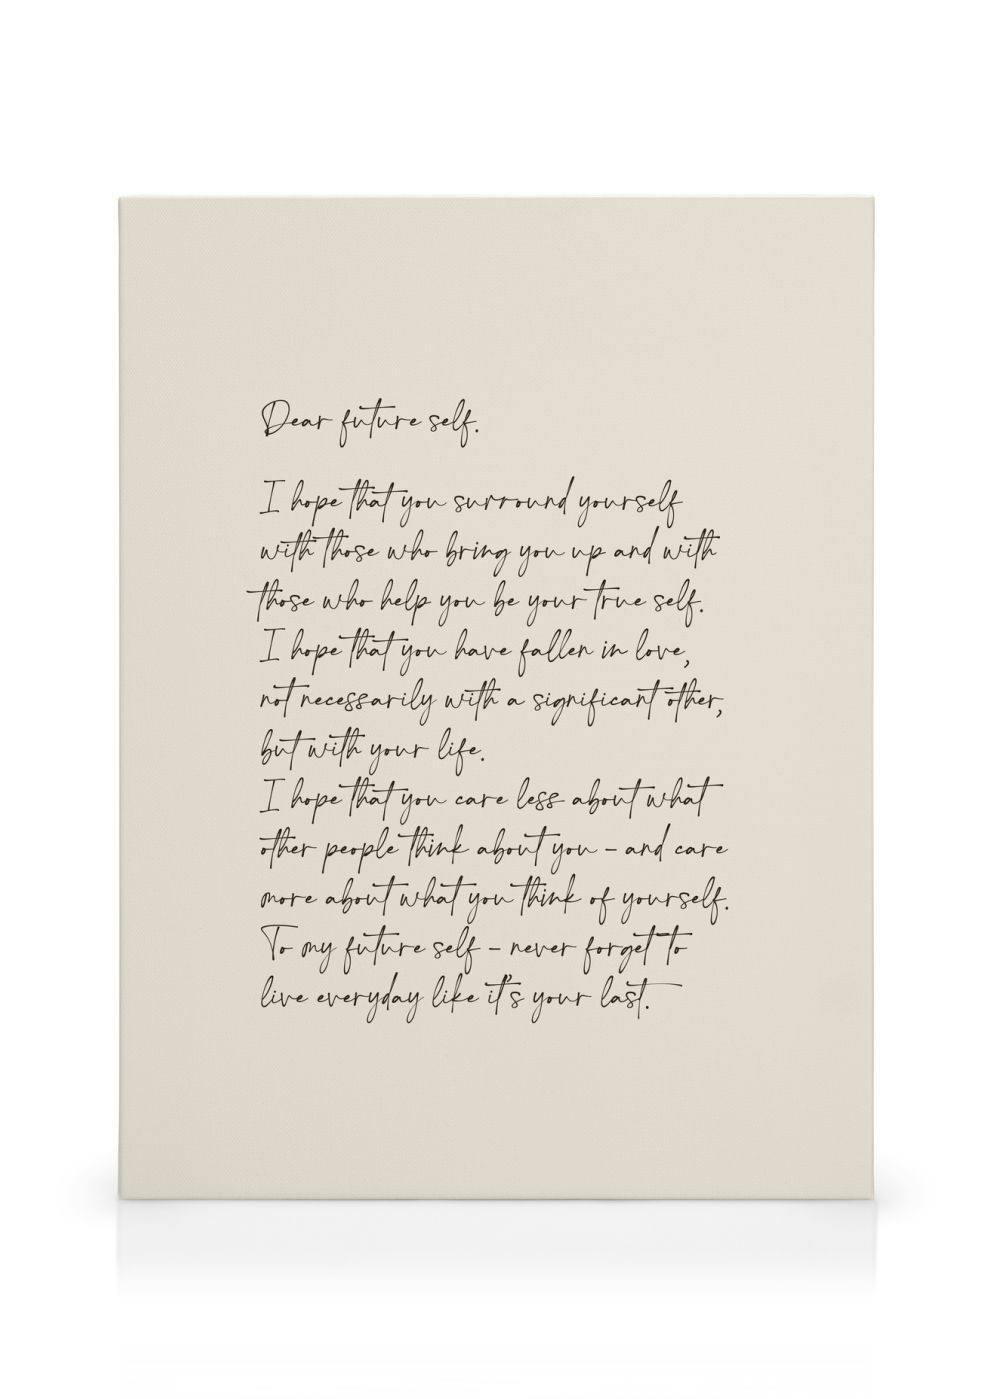 Dear future self.
I hope that you surround yourself
with those who bring you up and with
those who help you be your true self.
I hope that you have fallen in love,
not necessarily with a significant other,
but with your life.
I hope that you care less about what
other people think about you - and care
more about what you think of yourself.
To my future self - never forget to
live everyday like it's your last.